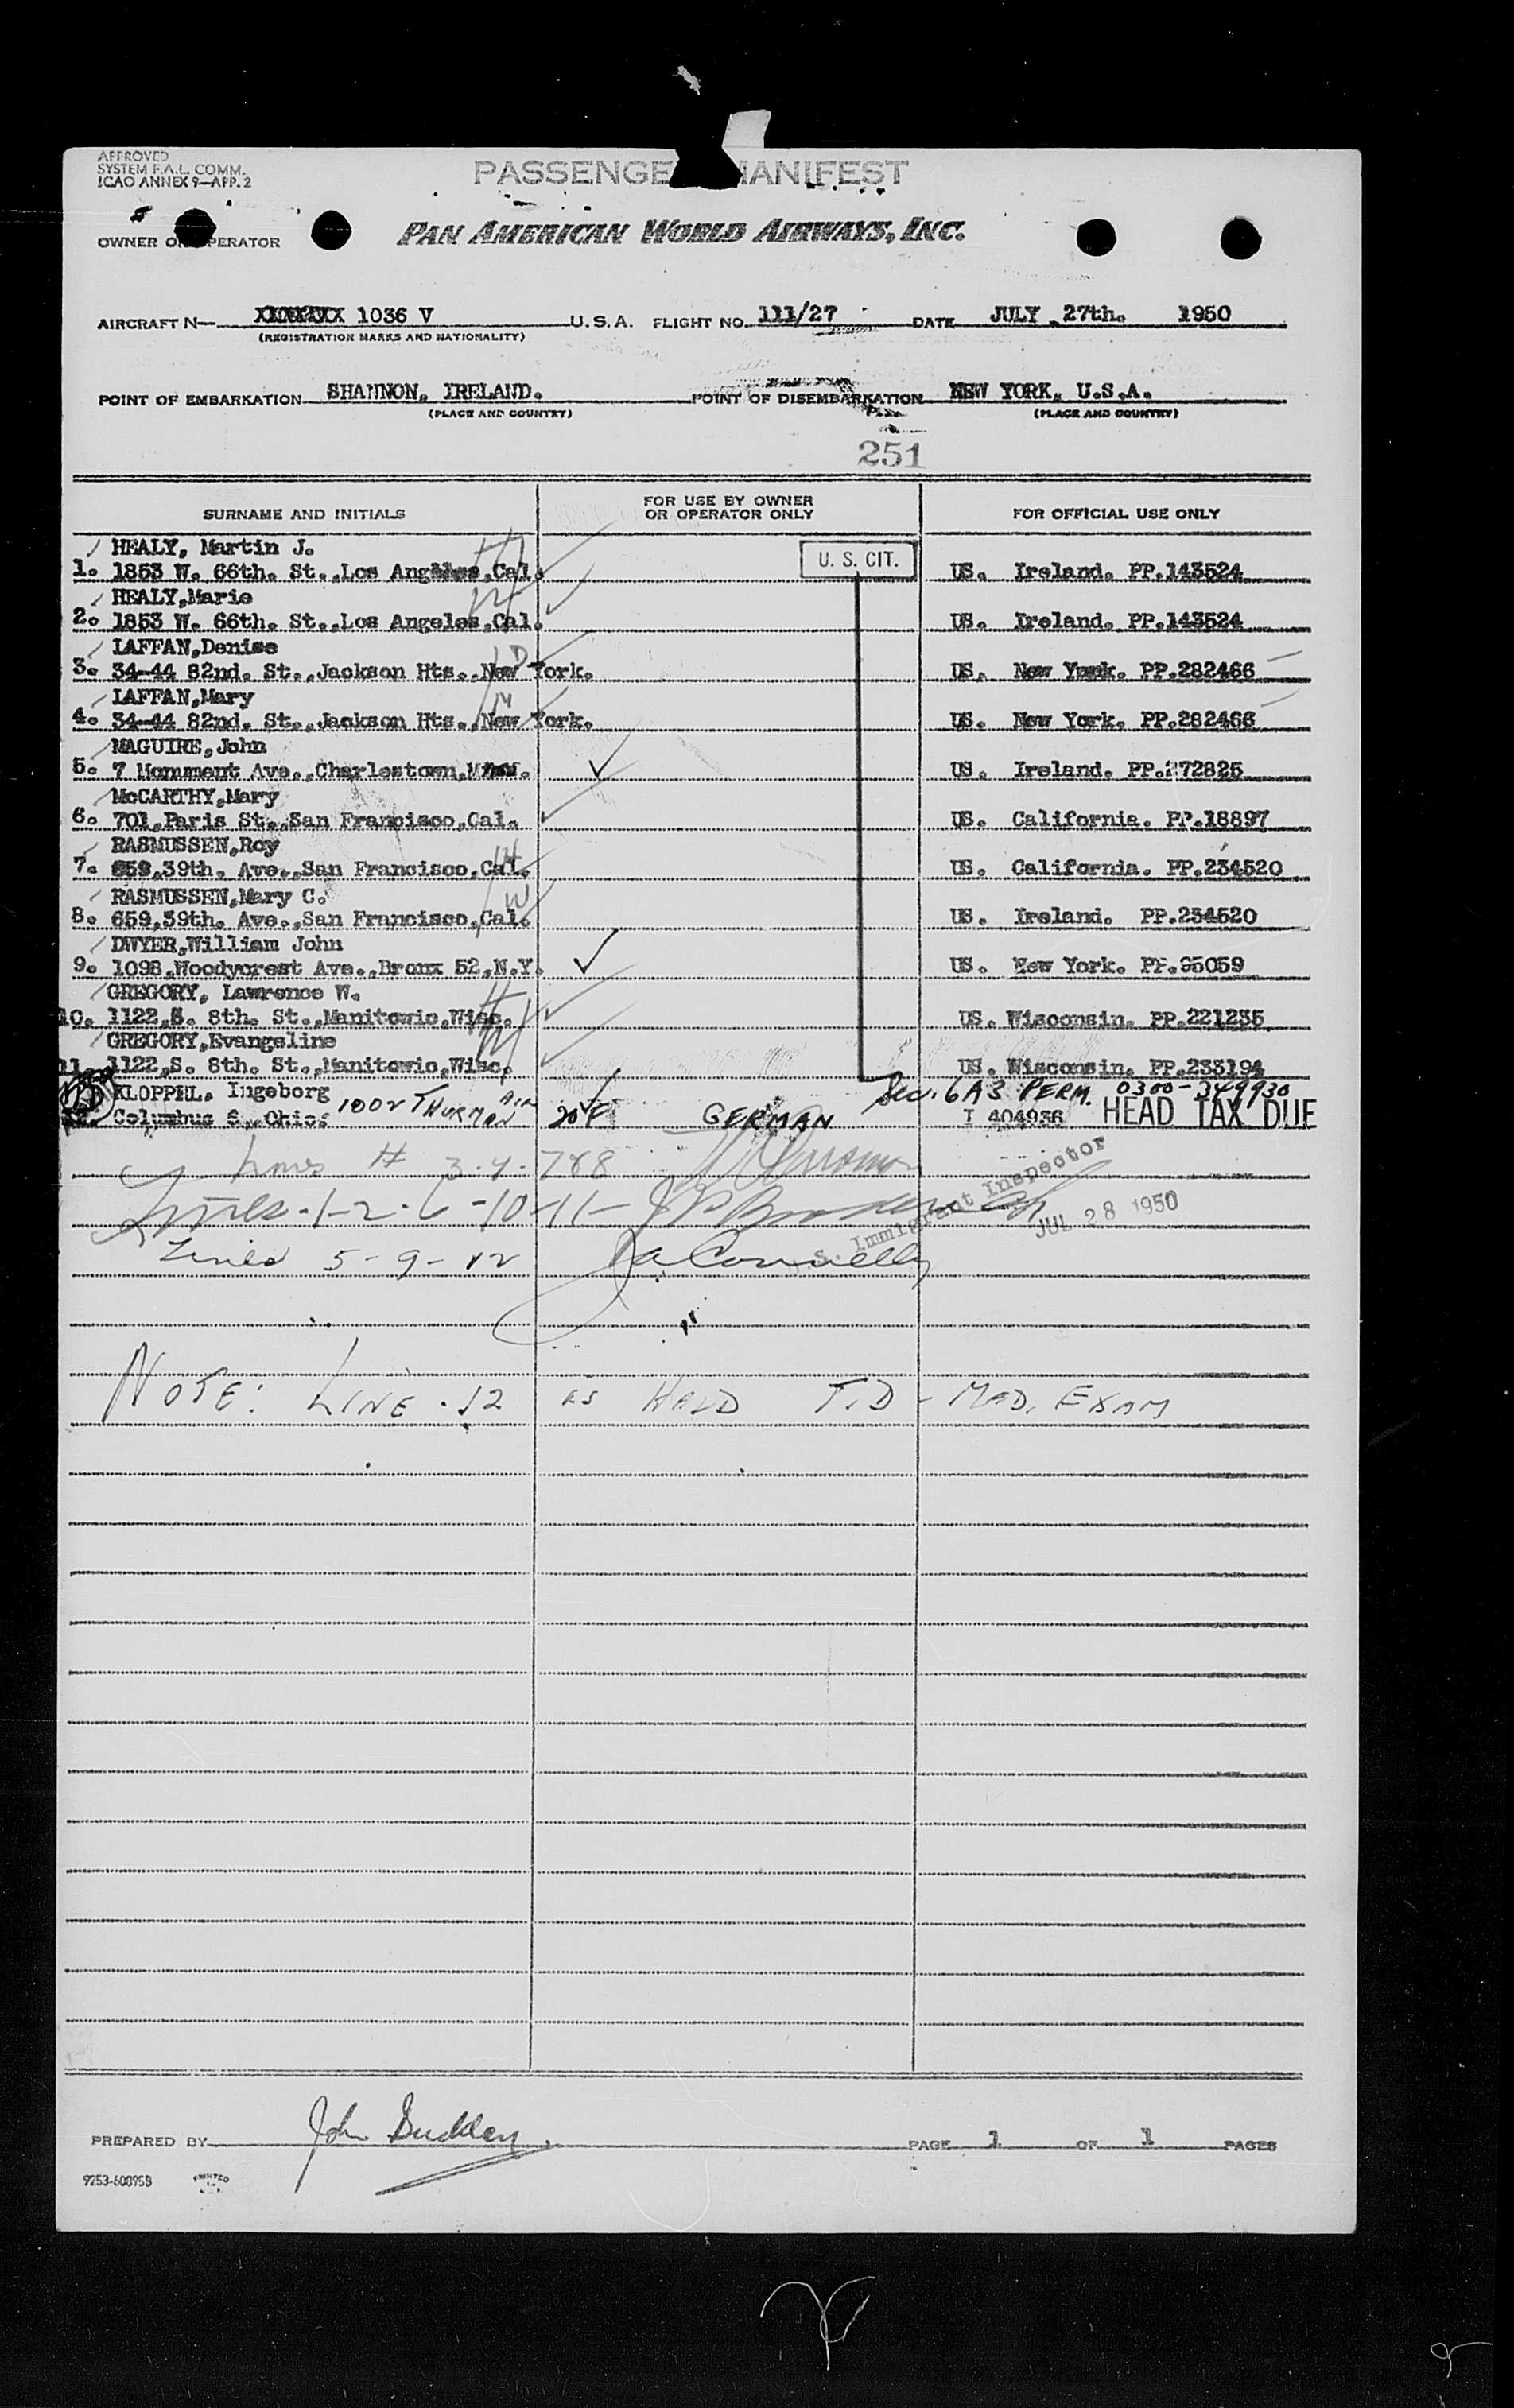 APPROVED
SYSTEM F.A.L. COMM.
ICAO ANNEX 9—APP. 2
PASSENGE ANIFEST
OWNER O PERATOR
PAN AMERICAN WORLD AIRWAYS, INC.
AIRCRAFT N— 1036 V U.S.A. FLIGHT NO. 111/27 DATE JULY 27th. 1950
(REGISTRATION MARKS AND NATIONALITY)
POINT OF EMBARKATION SHANNON, IRELAND. POINT OF DISEMBARKATION NEW YORK, U.S.A.
(PLACE AND COUNTRY) (PLACE AND COUNTRY)
251
SURNAME AND INITIALS FOR USE BY OWNER OR OPERATOR ONLY FOR OFFICIAL USE ONLY
HEALY, Martin J. H
U. S. CIT.
1. 1853 W. 66th. St.,Los Angeles,Cal. US. Ireland. PP.143524
HEALY,Marie W
2. 1853 W. 66th. St.,Los Angeles,Cal. US. Ireland. PP.143524
LAFFAN,Denise D
3. 34-44 82nd. St.,Jackson Hts.,New York. US. New York. PP.282466
LAFFAN,Mary M
4. 34-44 82nd. St.,Jackson Hts.,New York. US. New York. PP.282466
MAGUIRE,John
5. 7 Monument Ave.,Charlestown,Mass. US. Ireland. PP.272825
McCARTHY,Mary
6. 701,Paris St.,San Francisco,Cal. US. California. PP.18897
RASMUSSEN,Roy H
7. 659,39th. Ave.,San Francisco,Cal. US. California. PP.234520
RASMUSSEN,Mary C. W
8. 659,39th. Ave.,San Francisco,Cal. US. Ireland. PP.234520
DWYER,William John
9. 1098,Woodycrest Ave.,Bronx 52,N.Y. US. New York. PP.95059
GREGORY, Lawrence W. H
10. 1122,S. 8th. St.,Manitowic,Wisc. US. Wisconsin. PP.221235
GREGORY,Evangeline W
11. 1122,S. 8th. St.,Manitowic,Wisc. US. Wisconsin. PP.233194
KLOPPEL, Ingeborg Sec. 6A3 PERM. 0300-349930
Columbus 6, Ohio. 100 Thurman 20 F GERMAN I 404936 HEAD TAX DUE
Lines # 3.4.7&8
Lines-1-2-6-10-11-
U.S. Immigrant Inspector
JUL 28 1950
Lines 5-9-12 Connelly
NOTE: LINE-12 as HELD T.D - MED. EXAM
PREPARED BY John Buckley. PAGE 1 OF 1 PAGES
9253-60895B PRINTED